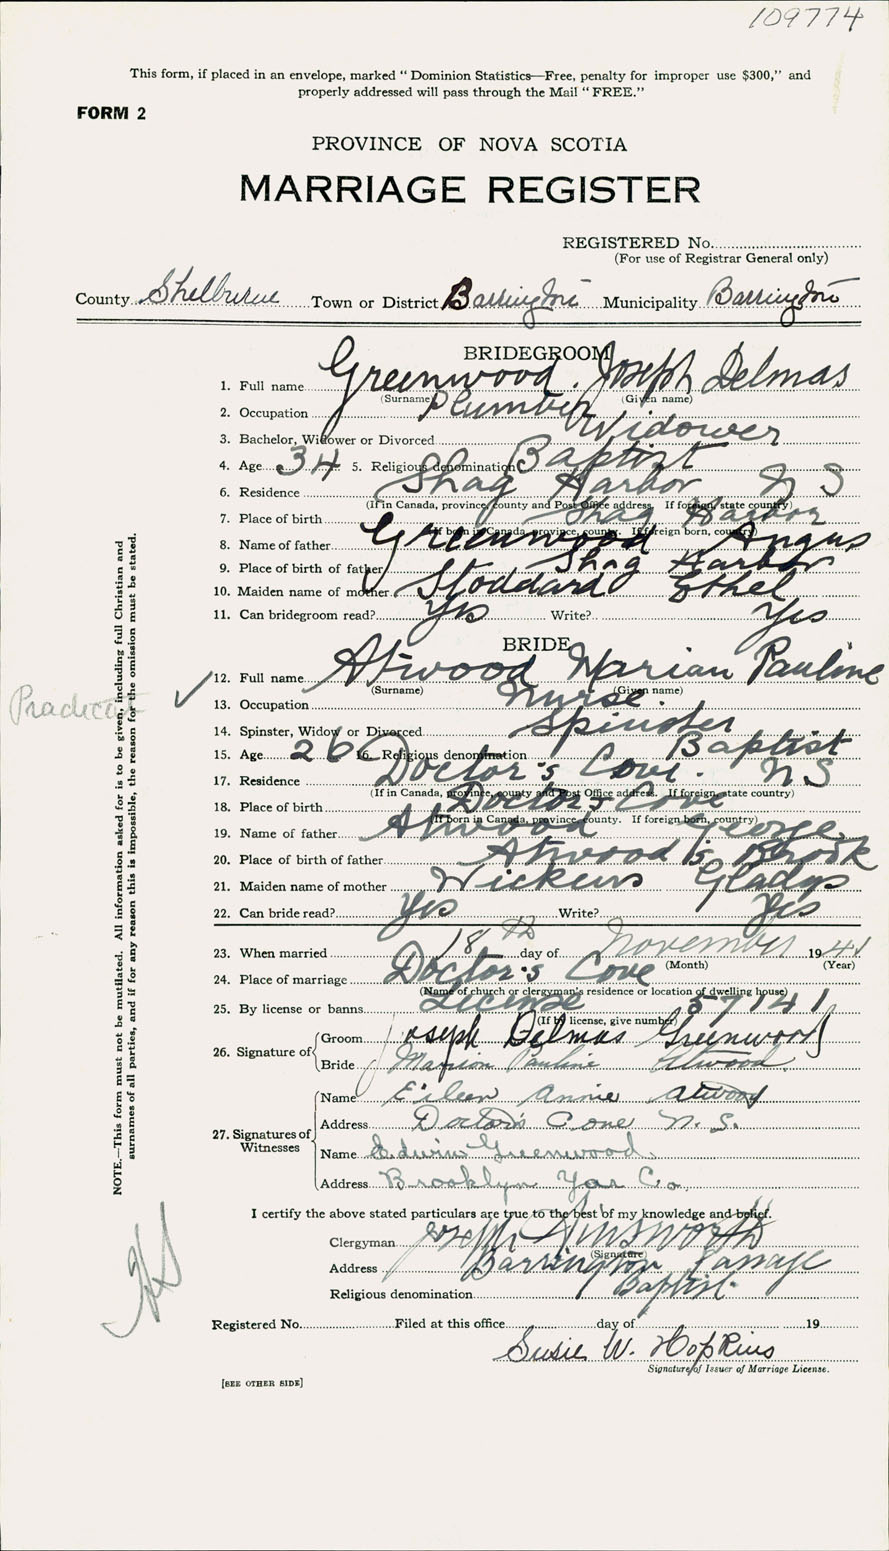 109774
This form, if placed in an envelope, marked "Dominion Statistics—Free, penalty for improper use $300," and
properly addressed will pass through the Mail "FREE."
FORM 2
PROVINCE OF NOVA SCOTIA
MARRIAGE REGISTER
REGISTERED No.
(For use of Registrar General only)
County Shelburne Town or District Barrington Municipality Barrington
BRIDEGROOM
1. Full name Greenwood. Joseph Delmas
(Surname) (Given name)
2. Occupation Plumber
3. Bachelor, Widower or Divorced Widower
4. Age 34 5. Religious denomination Baptist
6. Residence Shag Harbor N S
(If in Canada, province, county and Post Office address. If foreign, state country)
7. Place of birth Shag Harbor
(If born in Canada, province, county. If foreign born, country)
8. Name of father Greenwood Angus
9. Place of birth of father Shag Harbor
10. Maiden name of mother Stoddard Ethel
11. Can bridegroom read? Yes Write? Yes
BRIDE
12. Full name Atwood Marian Pauline
(Surname) (Given name)
13. Occupation Nurse.
14. Spinster, Widow or Divorced Spinster
15. Age 26 16. Religious denomination Baptist
17. Residence Doctor's Cove. N S
(If in Canada, province, county and Post Office address. If foreign, state country)
18. Place of birth Doctor's Cove
(If born in Canada, province, county. If foreign born, country)
19. Name of father Atwood George
20. Place of birth of father Atwood's Brook
21. Maiden name of mother Wickens Gladys
22. Can bride read? Yes Write? Yes
23. When married 18th day of November 1941
(Month) (Year)
24. Place of marriage Doctor's Cove
(Name of church or clergyman's residence or location of dwelling house)
25. By license or banns License 57141
(If by license, give number)
26. Signature of
Groom Joseph Delmas Greenwood
Bride Marion Pauline Atwood.
27. Signatures of Witnesses
Name Eileen Annie Atwood
Address Doctors Cove N. S.
Name Edwin Greenwood
Address Brooklyn Yar Co.
I certify the above stated particulars are true to the best of my knowledge and belief.
Clergyman Joseph Ainsworth
(Signature)
Address Barrington Passage
Religious denomination Baptist.
Registered No. Filed at this office day of 19
Susie W. Hopkins
Signature of Issuer of Marriage License.
[SEE OTHER SIDE]
NOTE.—This form must not be mutilated. All information asked for is to be given, including full Christian and
surnames of all parties, and if for any reason this is impossible, the reason for the omission must be stated.